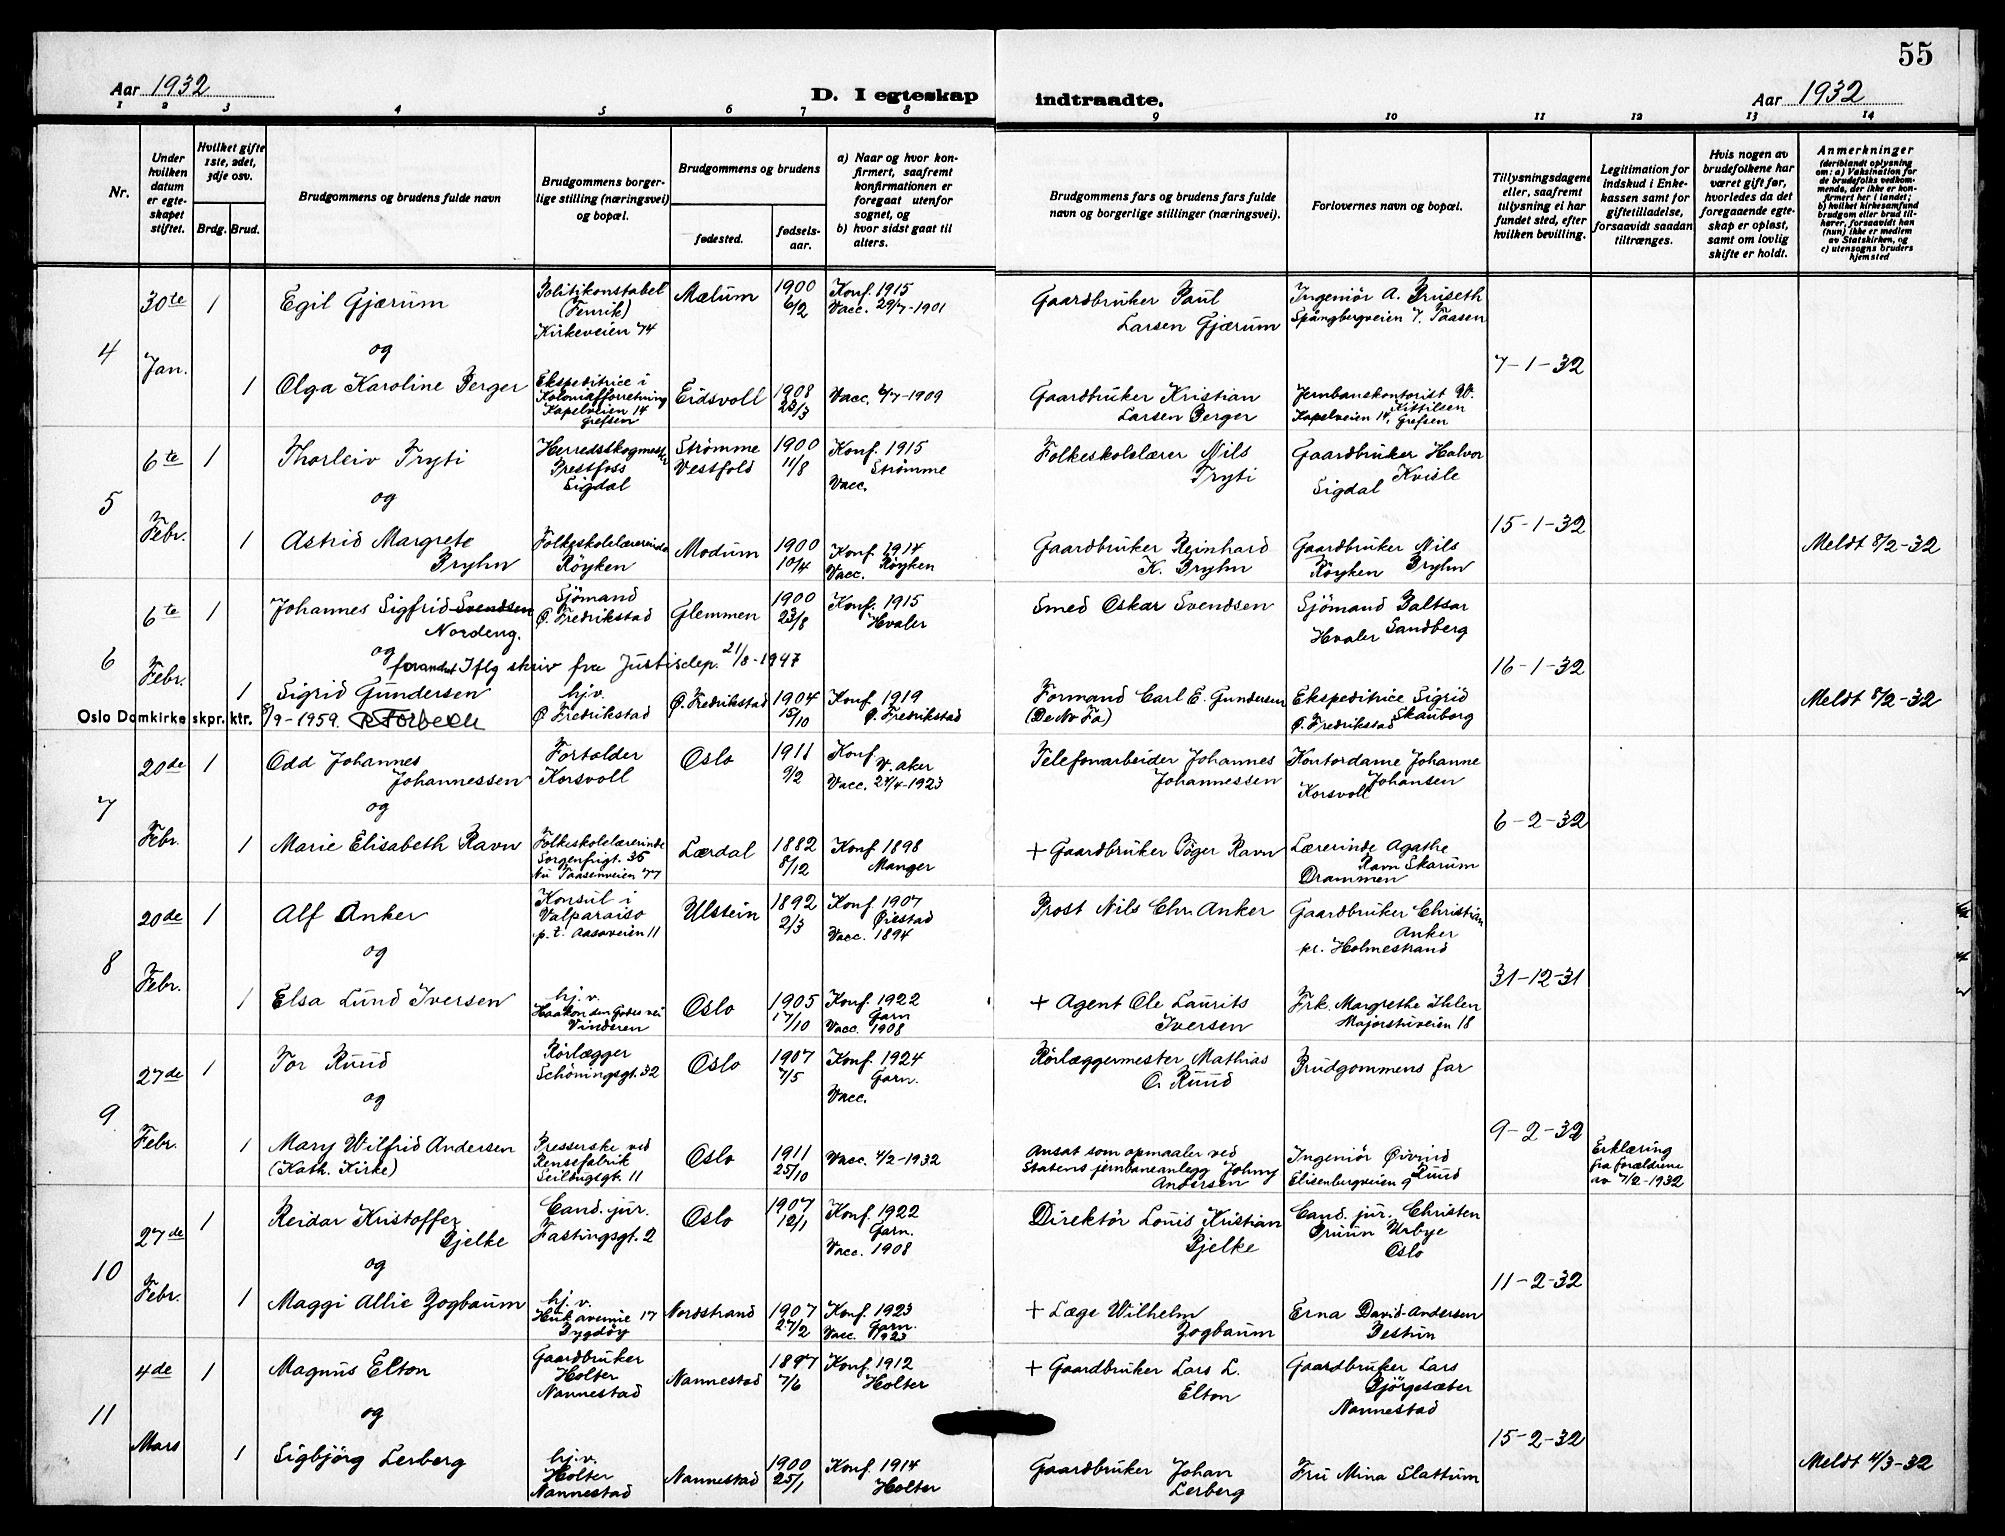 55
Aar 1932
D. I egteskap indtraadte.
Aar 1932
1 2 3 4 5 6 7 8 9 10 11 12 13 14
Nr.
Under hvilken datum er egteskapet stiftet.
Hvilket gifte 1ste, 2det, 3dje osv.
Brdg. Brud.
Brudgommens og brudens fulde navn
Brudgommens borgerlige stilling (næringsvei) og bopæl.
Brudgommens og brudens
fødested.
fødselsaar.
a) Naar og hvor konfirmert, saafremt konfirmationen er foregaat utenfor sognet, og
b) hvor sidst gaat til alters.
Brudgommens fars og brudens fars fulde navn og borgerlige stillinger (næringsvei).
Forlovernes navn og bopæl.
Tillysningsdagene eller, saafremt tillysning ei har fundet sted, efter hvilken bevilling.
Legitimation for indskud i Enkekassen samt for giftetilladelse, forsaavidt saadan tiltrænges.
Hvis nogen av brudefolkene har været gift før, hvorledes da det foregaaende egteskap er opløst, samt om lovlig skifte er holdt.
Anmerkninger
(deriblandt oplysning om: a) Vaksination for de brudefolks vedkommende, der ikke er konfirmert her i landet;
b) hvilket kirkesamfund brudgom eller brud tilhører, forsaavidt han (hun) ikke er medlem av Statskirken, og
c) utensogns bruders hjemsted
4
30te Jan.
1
Egil Gjærum
Politikonstabel
(Fenrik)
Kirkeveien 74
Mælum
1900
6/2
Konf. 1915
Vacc. 29/7-1901
Gaardbruker Paul
Larsen Gjærum
Ingeniør A. Bruseth
Spångbergveien 7. Taasen
og
7-1-32
1
Olga Karoline Berger
Ekspeditrice i
Kolonialforretning
Kapelveien 14
Grefsen
Eidsvoll
1908
Vacc. 6/7-1909
Gaardbruker Kristian
Larsen Berger
Jernbanekontorist W.
Kittilsen
Kapelveien 14, Grefsen
5
6te Febr.
1
Thorleiv Tryti
Herredsskogmester
Prestfoss
Sigdal
Strømme
Vestfold
1900
11/8
Konf. 1915
Strømme
Vacc.
Folkeskolelærer Nils
Tryti
Gaardbruker Halvor
Kvisle
Sigdal
og
15-1-32
1
Astrid Margrete
Bryhn
Folkeskolelærerinde
Røyken
Modum
1900
10/4
Konf. 1914
Røyken
Vacc.
Gaardbruker Reinhard
K. Bryhn
Gaardbruker Nils
Bryhn
Røyken
Meldt 8/2-32
6
6te Febr.
1
Johannes Sigfrid Svendsen
Nordeng.
Sjömand
Ø. Fredrikstad
Glemmen
1900
23/8
Konf. 1915
Hvaler
Smed Oskar Svendsen
Sjömand Baltsar
Sandberg
Hvaler
og
forandret Iflg skriv fra Justisdep. 21/8-1947
16-1-32
1
Sigrid Gundersen
hj.v.
Ø Fredrikstad
Ø. Fredrikstad
1904
15/10
Konf. 1919
Ø. Fredrikstad
Formand Carl E. Gundersen
(De No Fa)
Ekspeditrice Sigrid
Skauborg
Ø. Fredrikstad
Meldt 8/2-32
Oslo Domkirke skpr. ktr. 8/9-1959.
7
20de Febr.
1
Odd Johannes
Johannessen
Fortolder
Korsvoll
Oslo
1911
9/2
Konf.
V. aker
Vacc. 27/4-1923
Telefonarbeider Johannes
Johannessen
Kontordame Johanne
Johansen
Korsvoll
og
6-2-32
1
Marie Elisabeth Ravn
Folkeskolelærerinde
Sorgenfrigt. 35
Nu Taasenveien 77
Lærdal
1882
8/12
Konf. 1898
Manger
+ Gaardbruker Böger Ravn
Lærerinde Agathe
Ravn Skarum
Drammen
8
20de Febr.
1
Alf Anker
Konsul i
Valparaiso
p. t. Aasaveien 11
Ulstein
1892
2/3
Konf. 1907
Øiestad
Vacc. 1894
Prost Nils Chr. Anker
Gaardbruker Christian
Anker
pr. Holmestrand
og
31-12-31
1
Elsa Lund Iversen
hj. v.
Haakon den Godes vei
Vinderen
Oslo
1905
17/10
Konf. 1922
Garn
Vacc. 1908
+ Agent Ole Laurits
Iversen
Frk. Margrethe Ihlen
Majorstuveien 18
9
27de Febr.
1
Tor Ruud
Rørlægger
Schöningsgt. 32
Oslo
1907
7/5
Konf. 1924
Garn.
Vacc.
Rørlæggermester Mathias
O. Ruud
Brudgommens far
og
9-2-32
1
Mary Wilfrid Andersen
(Kath. Kirke)
Presserske ved
Rensefabrik
Seilduksgt. 11
Oslo
1911
25/10
Vacc. 4/2-1932
Ansat som opmaaler ved
Statens jernbaneanlegg Johny
Andersen
Ingeniör Øivind
Ruud
Elisenbergveien 9
Erklæring
fra forældrene
av 7/2-1932
10
27de Febr.
1
Reidar Kristoffer
Bjelke
Cand. jur.
Fastingsgt. 2
Oslo
1907
12/1
Konf. 1922
Garn.
Vacc. 1908
Direktör Louis Kristian
Bjelke
Cand. jur. Christen
Bruun Urbye
Oslo
og
11-2-32
1
Maggi Allie Zogbaum
hj. v.
Huk avenue 17
Bygdöy
Nordstrand
1907
27/2
Konf. 1923
Garn.
Vacc. 1923
+ Læge Wilhelm
Zogbaum
Erna David-Andersen
Bestun
11
4de Mars
1
Magnus Elton
Gaardbruker
Holter
Nannestad
Nannestad
1897
7/6
Konf. 1912
Holter
+ Gaardbruker Lars L.
Elton
Gaardbruker Lars
Bjørgesæter
Nannestad
og
15-2-32
1
Sigbjörg Lerberg
hj.v.
Holter
Nannestad
Nannestad
1900
25/1
Konf. 1914
Holter
Gaardbruker Johan
Lerberg
Fru Mina Slattum
Meldt 4/3-32